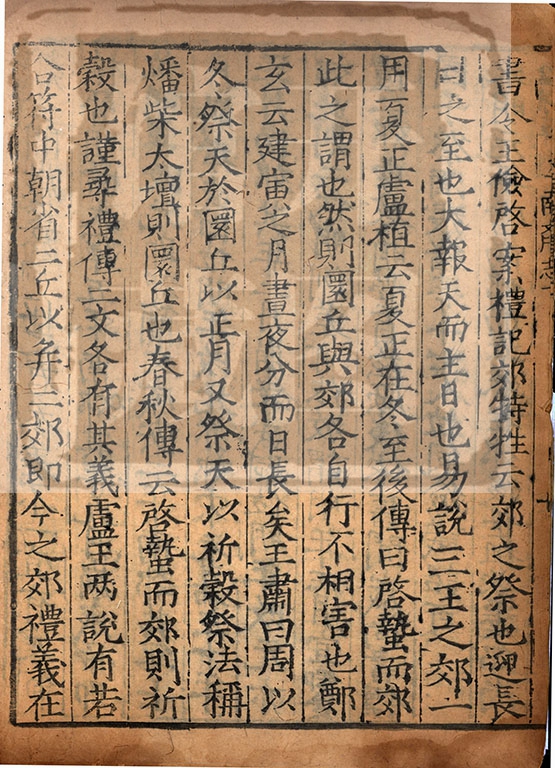 書令王儉啓案禮記郊特牲云郊之祭也迎長
日之至也大報天而主日也易說三王之郊一
用夏正盧植云夏正在冬至後傳曰啓蟄而郊
此之謂也然則圜丘與郊各自行不相害也鄭
玄云建寅之月晝夜分而日長矣王肅曰周以
冬祭天於圜丘以正月又祭天以祈穀祭法稱
燔柴太壇則圜丘也春秋傳云啓蟄而郊則祈
穀也謹尋禮傳二文各有其義盧王兩說有若
合符中朝省二丘以并二郊即今之郊禮義在